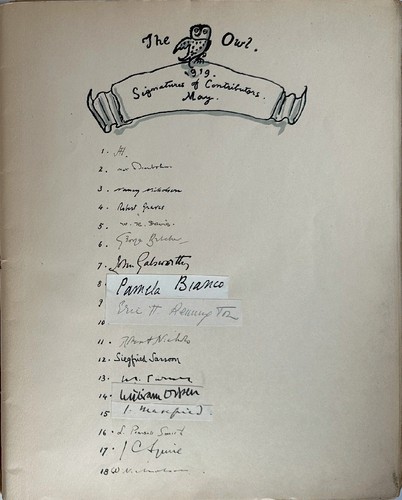 The Owl.
1919.
Signatures of Contributors.
May.
1.
2. Max Beerbohm
3. Nancy Nicholson
4. Robert Graves
5. W. H. Davies
6. George Belcher
7. John Galsworthy
8 Pamela Bianco
9 Eric H. Kennington
10
11. Robert Nichols
12. Siegfried Sassoon
13.
14. William Orpen
15 J. Masefield
16. L. Pearsall Smith
17. J C Squire
18 W. Nicholson